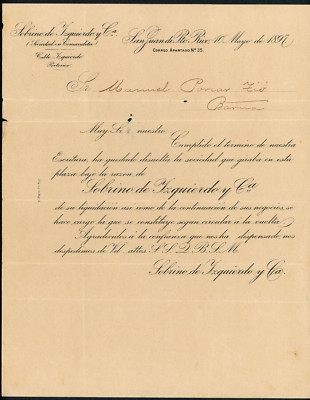 Sobrino de Izquierdo y Ca.
Sociedad en Comandita
Cable Izquierdo
San Juan de Pto. Rico, 10 Mayo de 1897
CORREO APARTADO Nº 20.
Sr. Manuel
Muy Sr nuestro
Cumplido el termino de nuestra
Escritura, ha quedado disuelta la sociedad que giraba en esta
plaza bajo la razon de
Sobrino de Izquierdo y Ca
de su liquidacion asi como de la continuacion de sus negocios, se
hace cargo la que se constituye segun circular á la vuelta.
Agradecidos á la confianza que nos ha dispensado, nos
despedimos de Vd. attos S. S. Q. B. S. M.
Sobrino de Izquierdo y Ca.